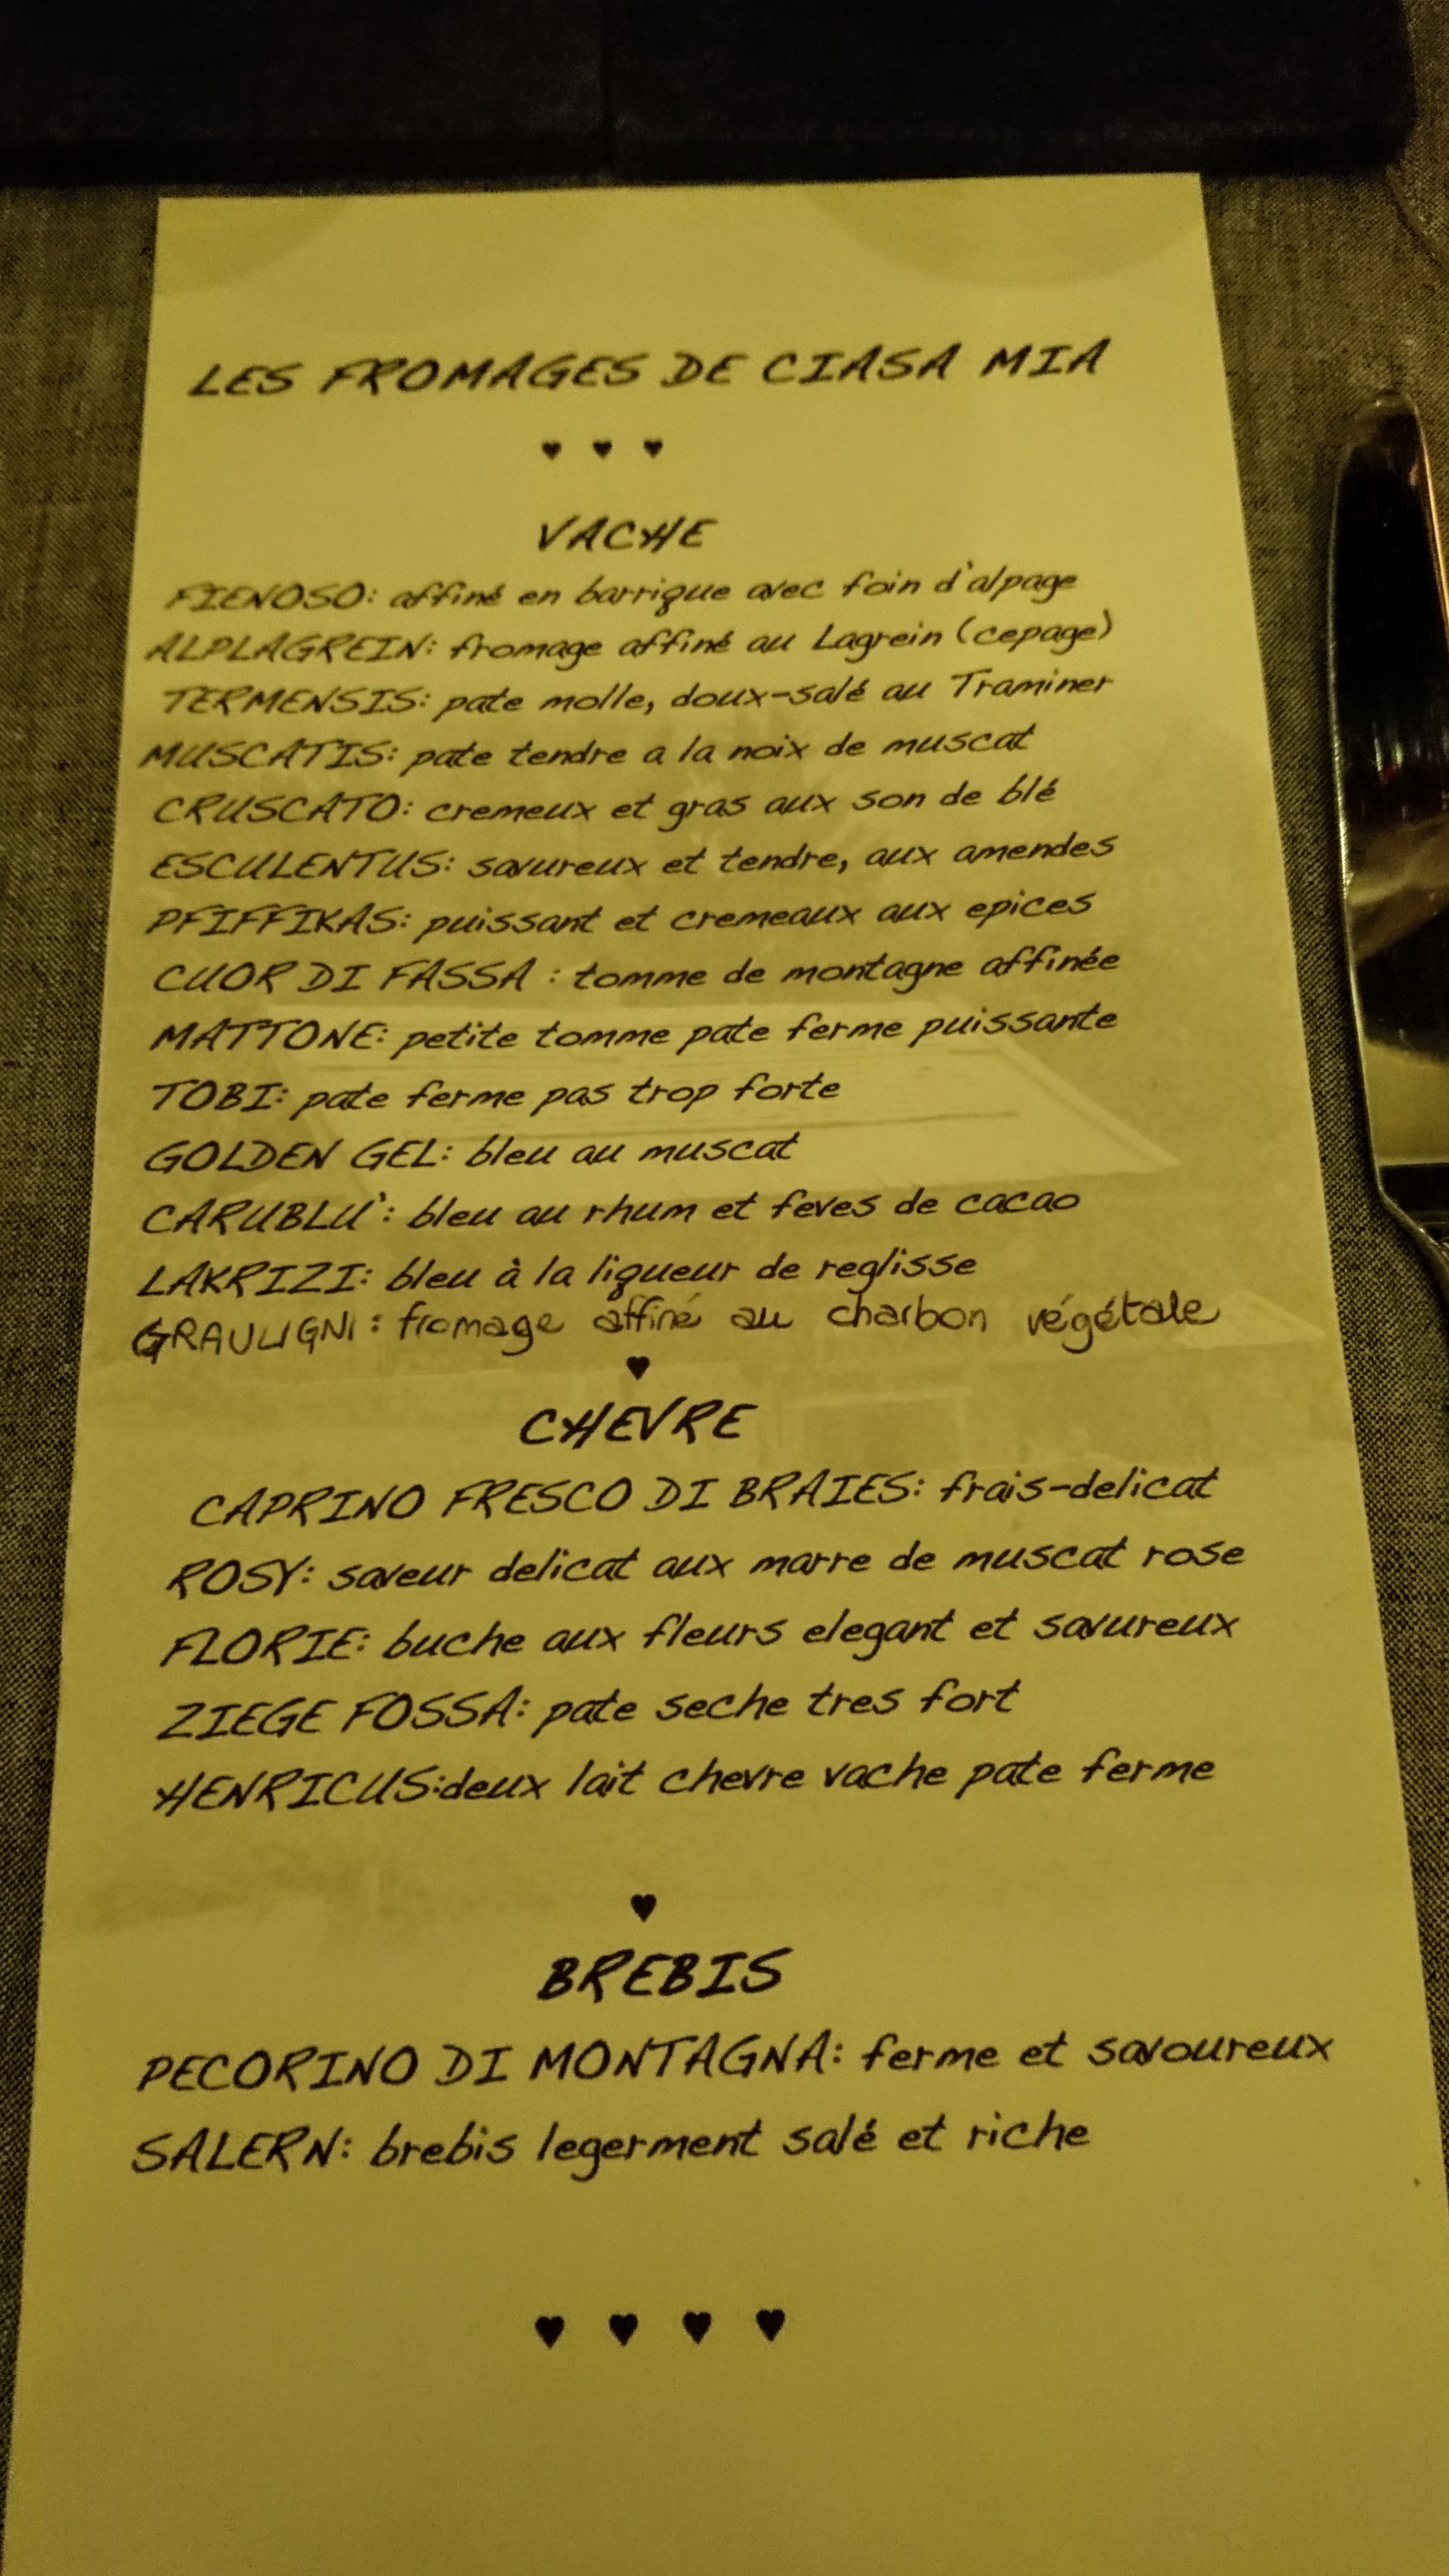 LES FROMAGES DE CIASA MIA
♥ ♥ ♥
VACHE
FIENOSO: affiné en barrique avec foin d'alpage
ALPLAGREIN: fromage affiné au Lagrein (cepage)
TERMENSIS: pate molle, doux-salé au Traminer
MUSCATIS: pate tendre a la noix de muscat
CRUSCATO: cremeux et gras aux son de blé
ESCULENTUS: savureux et tendre, aux amendes
PFIFFIKAS: puissant et cremeaux aux epices
CUOR DI FASSA : tomme de montagne affinée
MATTONE: petite tomme pate ferme puissante
TOBI: pate ferme pas trop forte
GOLDEN GEL: bleu au muscat
CARUBLU': bleu au rhum et feves de cacao
LAKRIZI: bleu à la liqueur de reglisse
GRAULIGNI: fromage affiné au charbon végétale
♥
CHEVRE
CAPRINO FRESCO DI BRAIES: frais-delicat
ROSY: saveur delicat aux marre de muscat rose
FLORIE: buche aux fleurs elegant et savureux
ZIEGE FOSSA: pate seche tres fort
HENRICUS:deux lait chevre vache pate ferme
♥
BREBIS
PECORINO DI MONTAGNA: ferme et savoureux
SALERN: brebis legerment salé et riche
♥ ♥ ♥ ♥